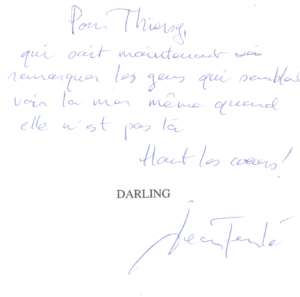 Pour Thierry,
qui sait maintenant
remarquer les gens qui semblent
voir la mer même quand
elle n'est pas là
Haut les cœurs!
DARLING
Jean Teulé